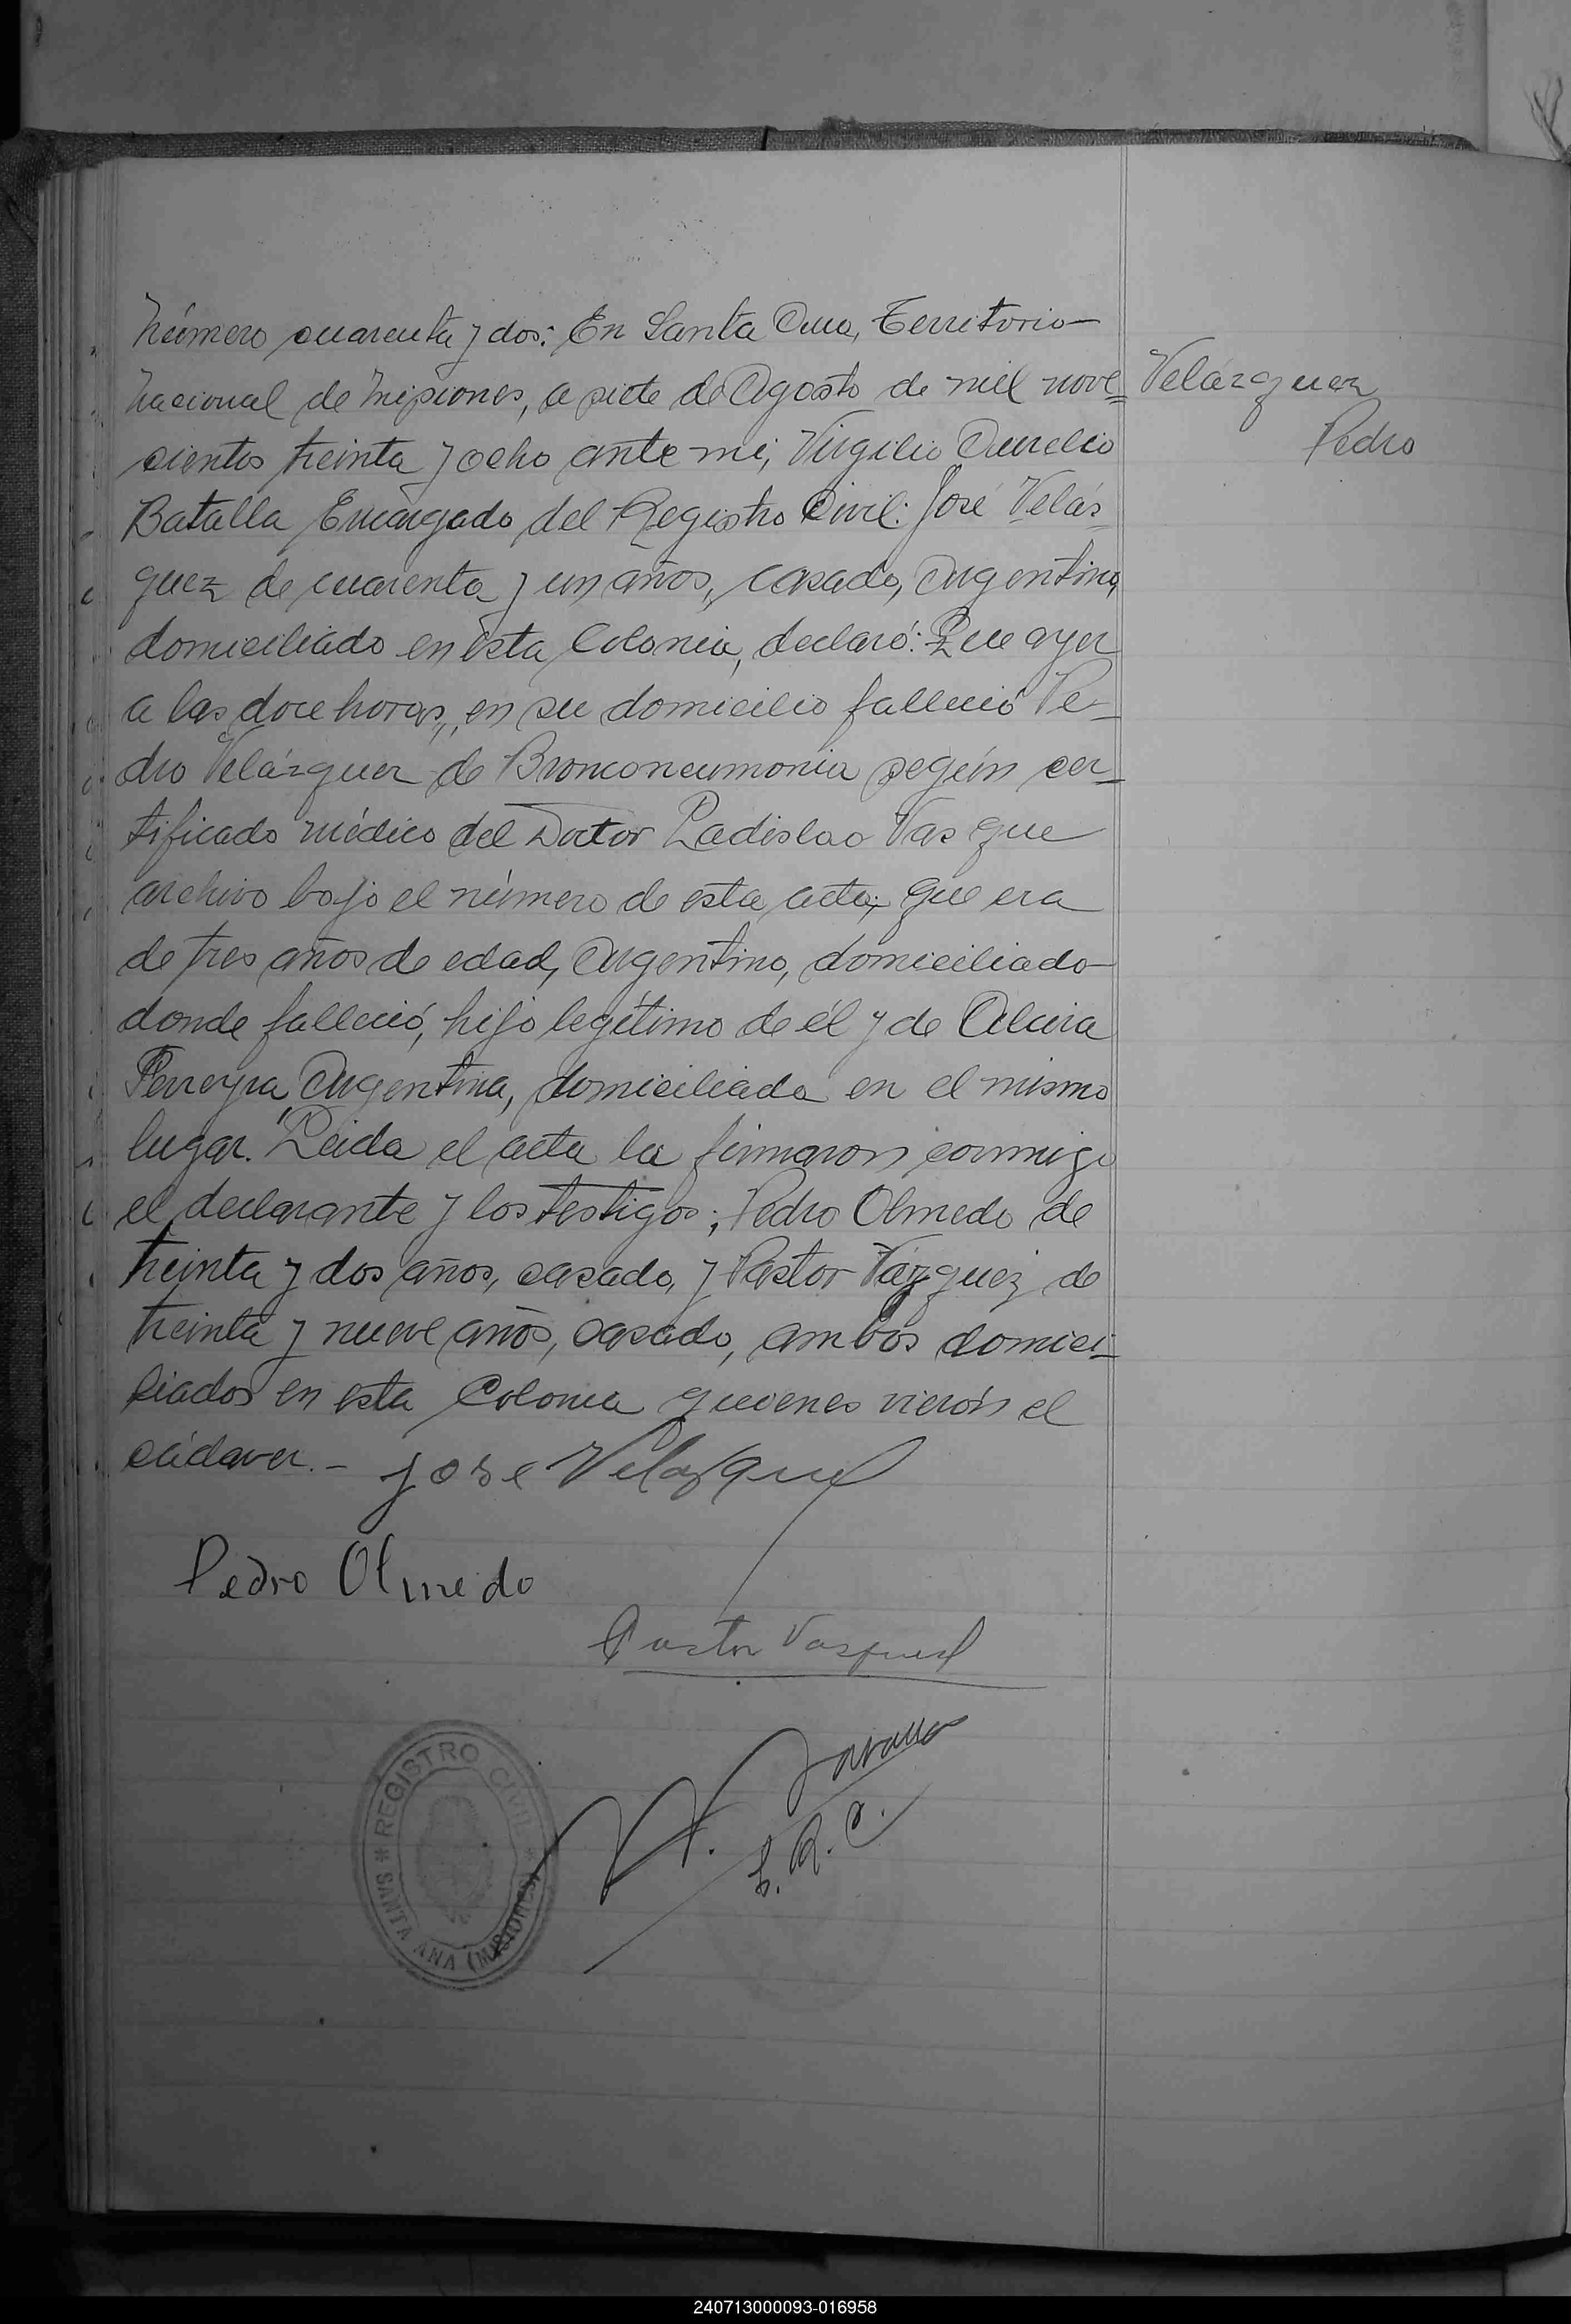 Número cuarenta y dos: En Santa Ana, Territorio
Nacional de Misiones, a siete de Agosto de mil nove=
cientos treinta y ocho ante mí, Virgilio Aurelio
Batalla Encargado del Registro Civil: José Velás
quez de cuarenta y un años, casado, Argentino,
domiciliado en esta Colonia, declaró: Que ayer
a las doce horas, en su domicilio falleció Pe-
dro Velázquez de Bronconeumonia según cer-
tificado médico del Doctor Ladislao Vas que
archivo bajo el número de esta acta; que era
de tres años de edad, Argentino, domiciliado
donde falleció, hijo legítimo de él y de Alcira
Ferreyra Argentina, domiciliada en el mismo
lugar. Leida el acta la firmaron conmigo
el declarante y los testigos; Pedro Olmedo de
treinta y dos años, casado, y Pastor Vázquez de
treinta y nueve años, casado, ambos domici-
liados en esta Colonia quienes vierón el
cádaver.- Jose Velasquez
Pedro Olmedo
Pastor Vasquez
V. A.
E. R. C.
* REGISTRO CIVIL *
SANTA ANA (MISIONES)
Velázquez
Pedro
240713000093-016958